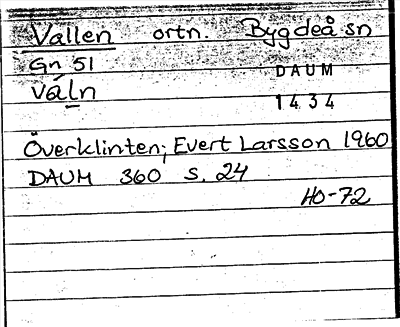 Vallen ortn. Bygdeå sn
Gn 51 DAUM
váln
1434
Överklinten; Evert Larsson 1960
DAUM 360 s. 24
HO-72